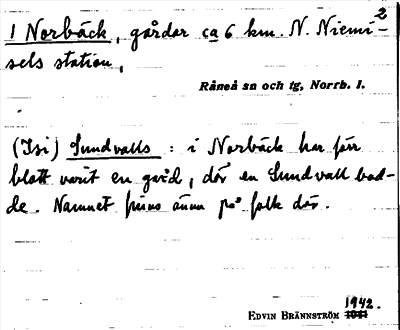 2
I Norbäck, gårdar ca 6 km. N. Niemi-
sels station,
Råneå sn och tg, Norrb. l.
(Isi) Sundvalls : i Norbäck har förr
blott varit en gård, där en Sundvall bod-
de. Namnet finns ännu på folk där.
1942.
EDVIN BRÄNNSTRÖM 1941